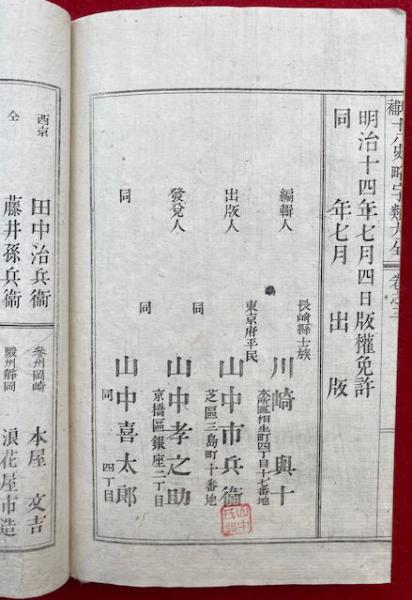 補十八史略字類大全 卷之三
明治十四年七月四日版權免許
同 年七月 出 版
編輯人
長崎縣士族
川崎與十
本所區相生町四丁目十七番地
出版人
東京府平民
山中市兵衞
芝區三島町十番地
發兌人
同
山中孝之助
京橋區銀座二丁目
同
同
山中喜太郎
同 四丁目
西京
田中治兵衞
仝
藤井孫兵衞
參州岡崎
本屋文吉
駿州靜岡
浪花屋市造